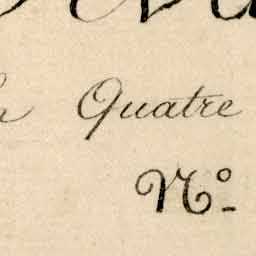 Quatre
Nº